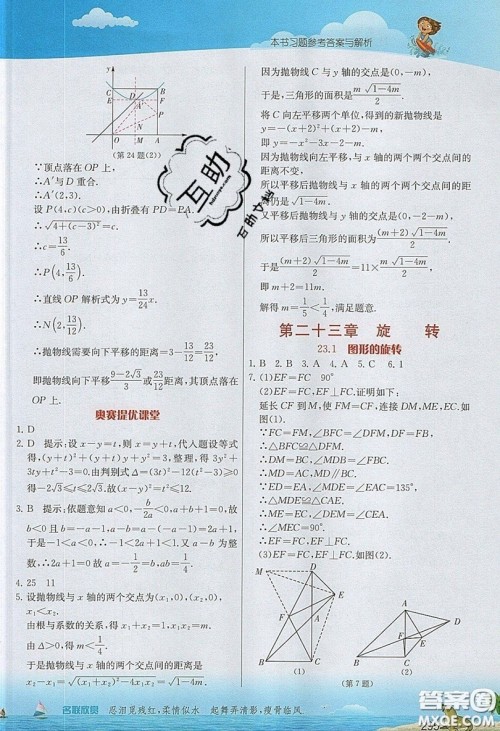 本书习题参考答案与解析
B
D
A'
E
P
O
M
A
x
(第24题(2))
∵顶点落在OP上,
∴A'与D重合.
∴A'(2,3).
设P(4,c)(c>0),由折叠有PD=PA.
∴√(4+(c-3)²)=c.
∴c=13/6.
∴P(4,13/6).
∴直线OP解析式为y=13/24x.
∴抛物线需要向下平移的距离=3-13/12=23/12.
即抛物线向下平移的距离为(9-2√3)/3或23/12.
奥赛提优课堂
1. D
2. D 提示:设x-y=t,则x=y+t,代入题设等式
得,(y+t)²+(y+t)y+y²=2,整理,得3y²+
3ty+t²-2=0.由判别式Δ=(3t)²-12(t²-2)≥0
得-2√2≤t≤2√2.故(x-y)²=t²≤
3. B 提示:依题意知a<0,-b/2a<0,a+b+1=0,故
b<0且b=-a-1,a-b=a-(-a-1)=2a+1,
于是-1<a<0,∴-1<2a+1<1.又a-b为整
数,∴2a+1=0.故a=-1/2=b,ab=1/4.
4. 25 11
5. 设抛物线与x轴的两个交点为(x₁,0),(x₂,0),
x₁<x₂.
由根与系数的关系,得x₁+x₂=1,x₁x₂=m.
由Δ>0,得m<1/4.
于是抛物线与x轴的两个交点的距离是
x₂-x₁=√((x₁+x₂)²-4x₁x₂)=√(1-4m).
因为抛物线C与y轴的交点是(0,-m),
于是,三角形的面积是m√(1-4m)/2.
将C向左平移两个单位,得到的新抛物线是
y=-(x+2)²+(x+2)-m,
即y=-x²-3x-2-m.
因为抛物线向左平移,与x轴的两个交点间的
距离不变,
所以平移后抛物线与x轴的两个交点间的距
离仍是√(1-4m).
又平移后抛物线与y轴的交点是(0,-m-2),
所以平移后三角形面积是(m+2)√(1-4m)/2.
于是(m+2)√(1-4m)/2=11×m√(1-4m)/2,
解得m=1/5<1/4,满足题意.
第二十三章 旋 转
23.1 图形的旋转
1. B 2. B 3. A 4. A 5. C 6. 1
7. (1)EF=FC 90°
(2)EF=FC,EF⊥FC.证明如下:
延长CF到M,使FM=CF,连接DM,ME,
EC.
∵FC=FM,∠BFC=∠DFM,DF=FB,
∴△BFC≌△DFM.
∴DM=BC,∠MDB=∠FBC.
∴MD=AC,MD∥BC.
又ED=EA,∠MDE=∠EAC=135°,
∴△MDE≌△CAE.
∴ME=EC,∠MED=∠CEA.
∴∠MEC=90°.
∴EF=FC,EF⊥FC.
(2)EF=FC.如图(2).
M
D
E
F
A
B
C
(1)
A
D
F
E
B
C
(2)
(第7题)
名联欣赏 忍泪觅残红,柔情似水 起舞弄清影,瘦骨临风
互助
互助文档
答案圈
MXQE.COM